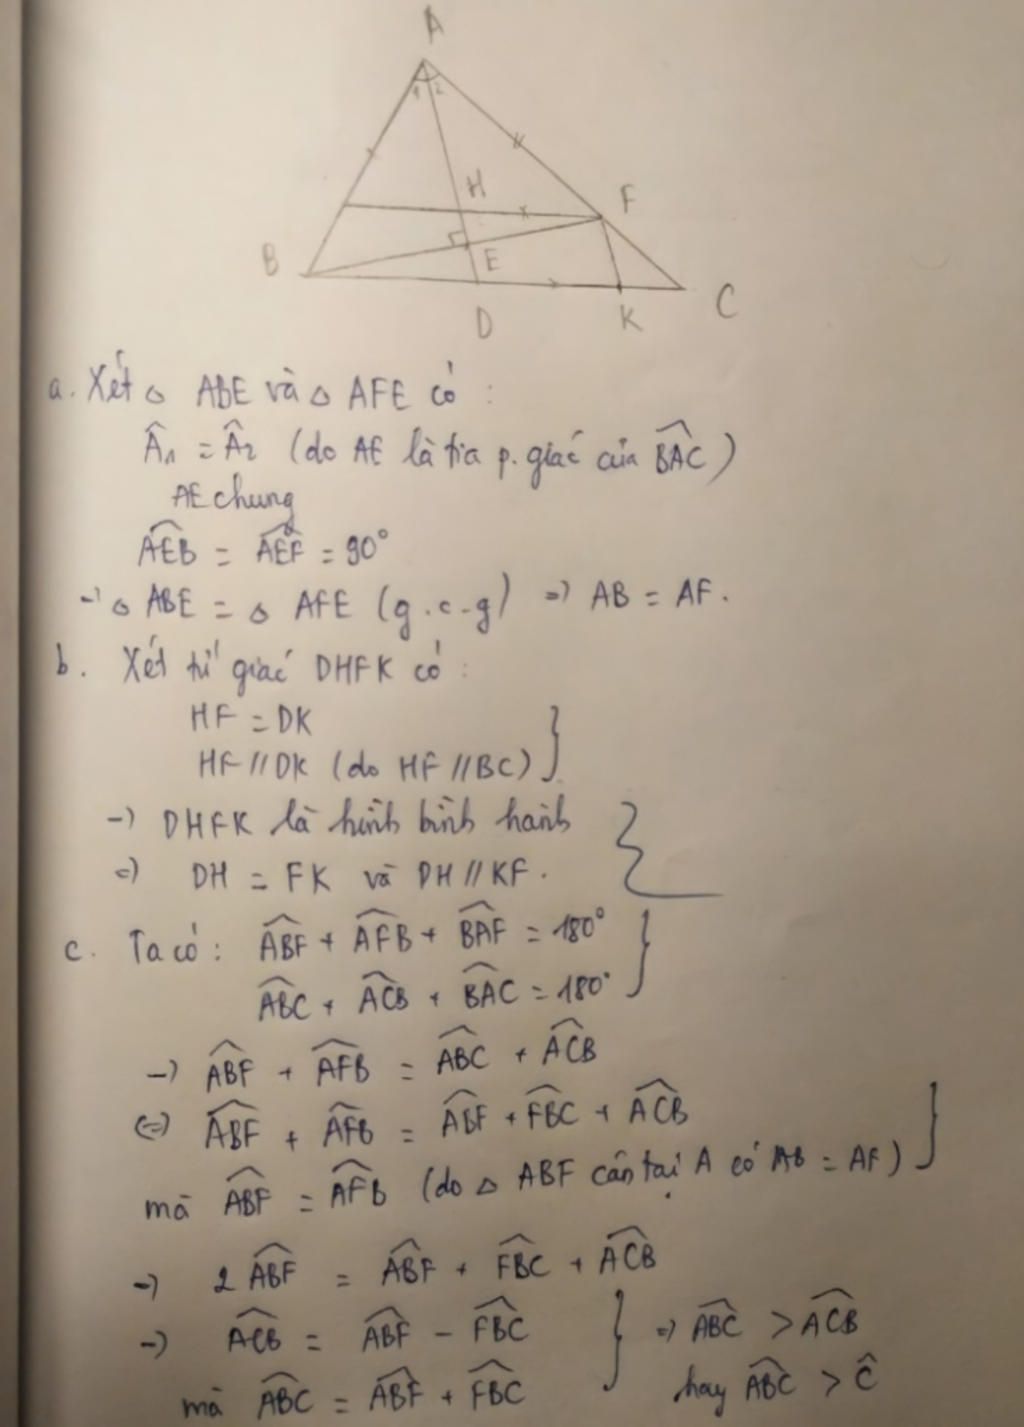 A
1 2
H
F
B
E
D
K
C
a. Xét △ ABE và △ AFE có :
Â₁ = Â₂ (do AE là tia p. giác của \widehat{BAC})
AE chung
\widehat{AEB} = \widehat{AEF} = 90°
-> △ ABE = △ AFE (g.c-g) => AB = AF.
b. Xét tứ giác DHFK có :
HF = DK
HF // DK (do HF // BC) }
-> DHFK là hình bình hành
=> DH = FK và DH // KF.
c. Ta có : \widehat{ABF} + \widehat{AFB} + \widehat{BAF} = 180°
\widehat{ABC} + \widehat{ACB} + \widehat{BAC} = 180° }
-> \widehat{ABF} + \widehat{AFB} = \widehat{ABC} + \widehat{ACB}
<=> \widehat{ABF} + \widehat{AFB} = \widehat{ABF} + \widehat{FBC} + \widehat{ACB}
mà \widehat{ABF} = \widehat{AFB} (do △ ABF cân tại A có AB = AF) }
-> 2 \widehat{ABF} = \widehat{ABF} + \widehat{FBC} + \widehat{ACB}
-> \widehat{ACB} = \widehat{ABF} - \widehat{FBC} } => \widehat{ABC} > \widehat{ACB}
mà \widehat{ABC} = \widehat{ABF} + \widehat{FBC} hay \widehat{ABC} > Ĉ